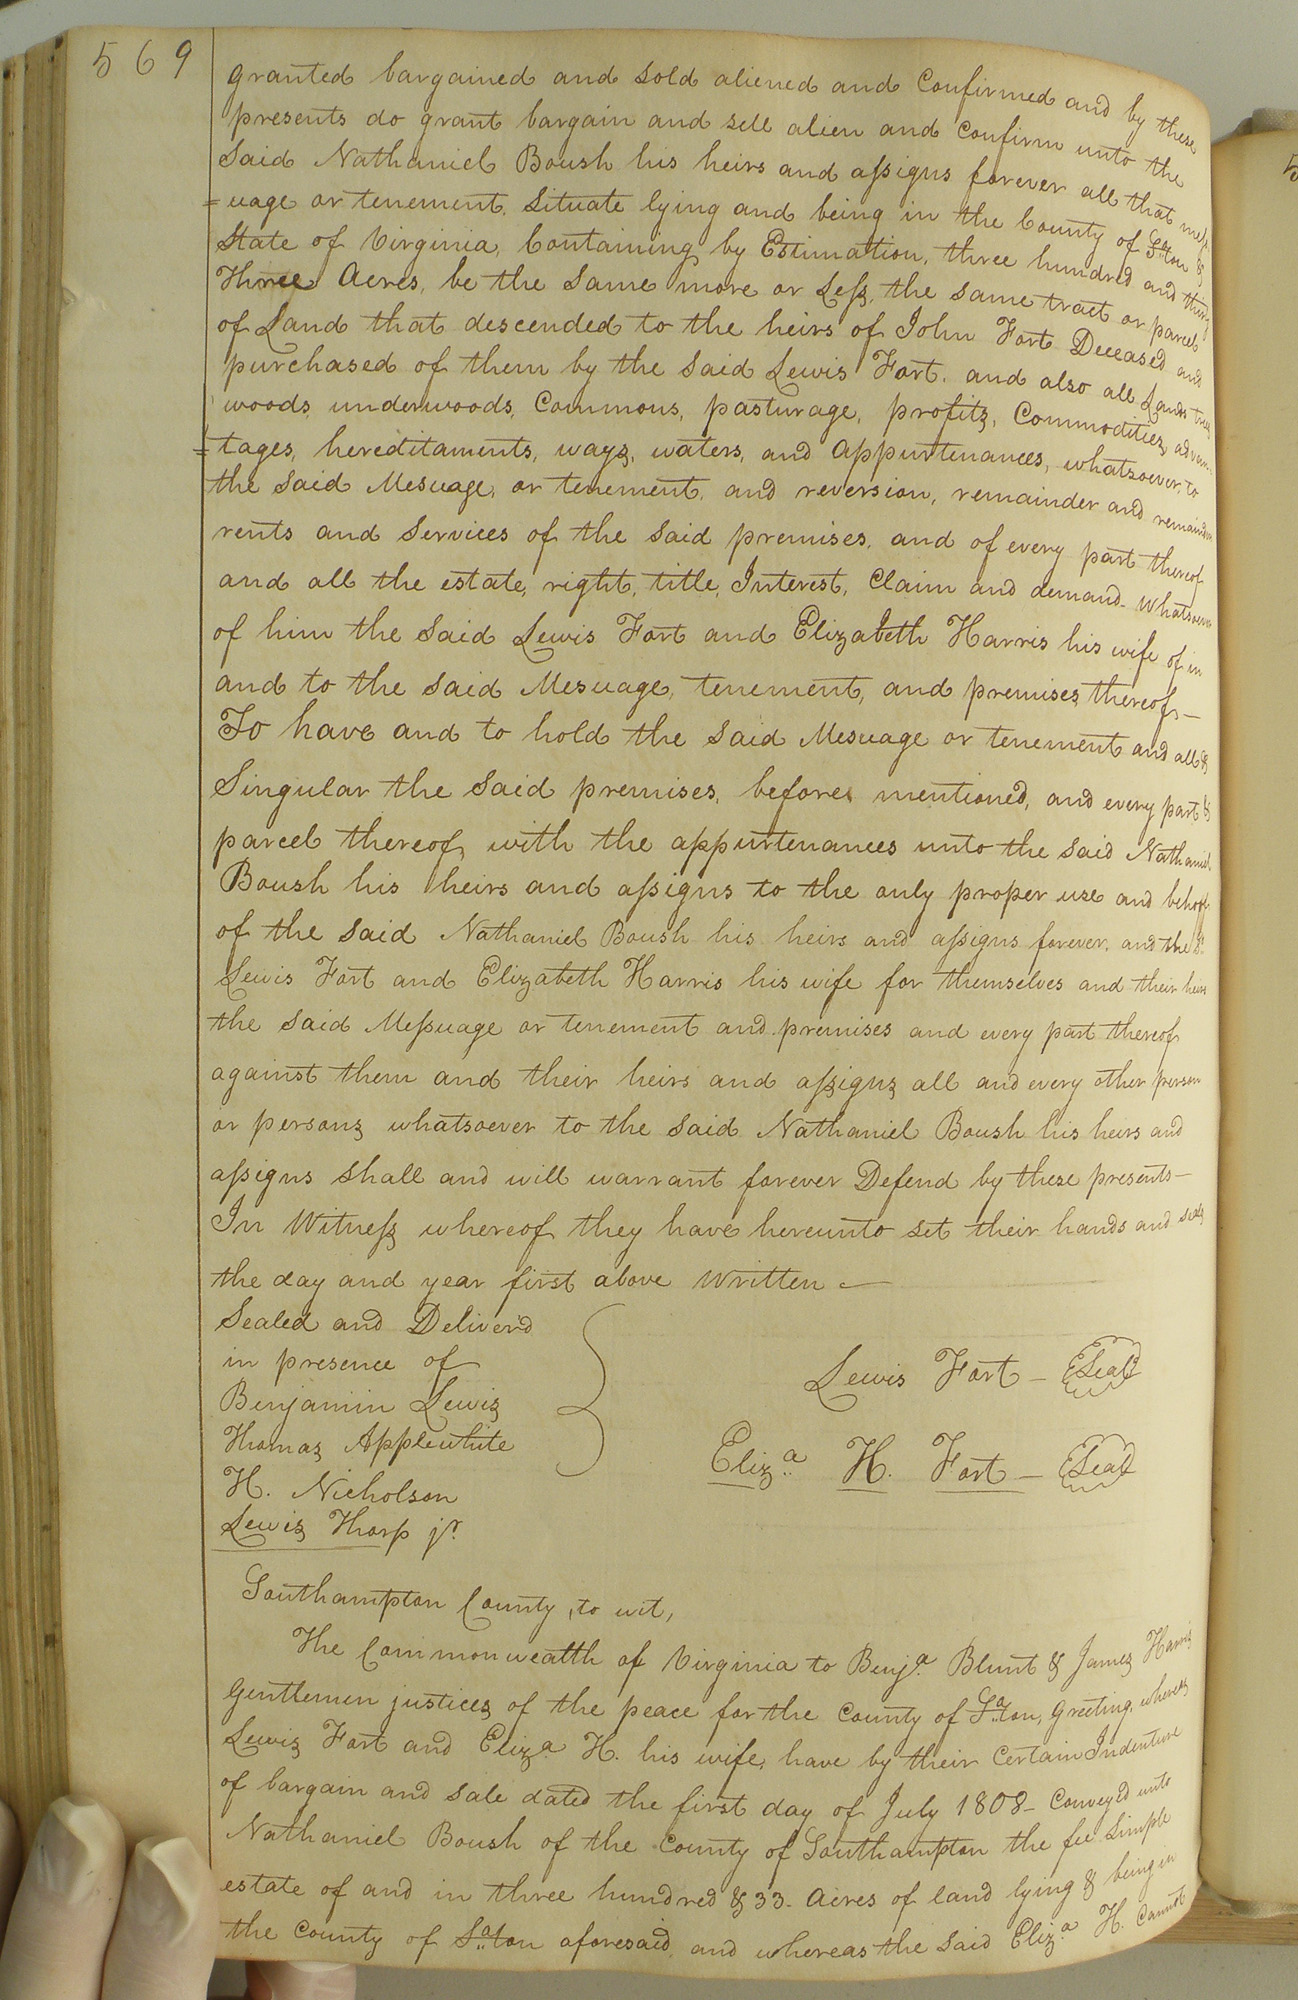 569
granted bargained and sold aliened and Confirmed and by these
presents do grant bargain and sell alien and Confirm unto the
Said Nathaniel Boush his heirs and assigns forever all that mess
=uage or tenement, Situate lying and being in the County of S:a:ton &
State of Virginia, Containing by Estimation, three hundred and thirty
Three Acres, be the Same more or Less, the same tract or parcel
of Land that descended to the heirs of John Fort Deceased and
purchased of them by the Said Lewis Fort, and also all Lands trees
woods, underwoods, Commons, pasturage, profits, Commodities, advan-
=tages, hereditaments, ways, waters, and appurtenances, whatsoever, to
the Said Mesuage, or tenement, and reversion, remainder and remainders
rents and Services of the Said premises, and of every part thereof
and all the estate, right, title, Interest, Claim and demand whatsoever
of him the Said Lewis Fort and Elizabeth Harris his wife of in
and to the Said Mesuage, tenement, and premises thereof—
To have and to hold the Said Mesuage or tenement and all &
Singular the Said premises, before mentioned, and every part &
parcel thereof, with the appurtenances unto the Said Nathaniel
Boush his heirs and assigns to the only proper use and behoof
of the Said Nathaniel Boush his heirs and assigns forever, and the Sd.
Lewis Fort and Elizabeth Harris his wife for themselves and their heirs
the Said Messuage or tenement and premises and every part thereof
against them and their heirs and assigns all and every other person
or persons whatsoever to the Said Nathaniel Boush his heirs and
assigns shall and will warrant forever Defend by these presents—
In Witness whereof they have hereunto set their hands and seals
the day and year first above Written —
Sealed and Deliver'd
in presence of
Benjamin Lewis
Thomas Applewhite
H. Nicholson
Lewis Thorp jr.
Lewis Fort — Seal
Eliz:a H. Fort — Seal
Southampton County, to wit,
The Commonwealth of Virginia to Benj.a Blunt & James Harris
Gentlemen justices of the peace for the County of S:a:ton, Greeting, whereas
Lewis Fort and Eliza H. his wife, have by their Certain Indenture
of bargain and Sale dated the first day of July 1808— Conveyed unto
Nathaniel Boush of the County of Southampton the fee Simple
estate of and in three hundred & 33. Acres of land lying & being in
the County of S:a:ton aforesaid, and whereas the Said Eliz:a H. Cannot